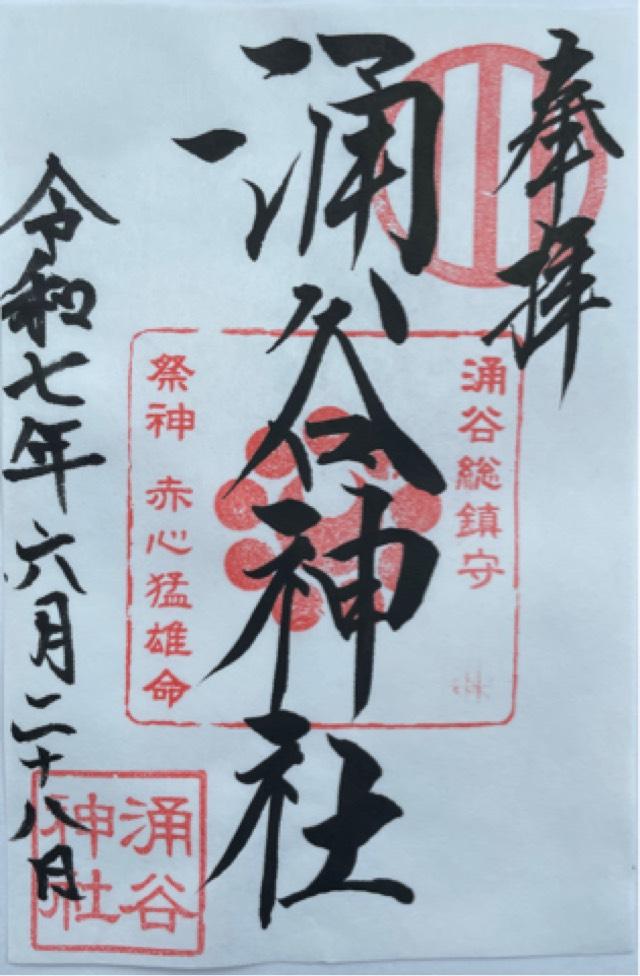 奉拝
涌谷総鎮守
涌谷神社
祭神 赤心猛雄命
令和七年六月二十八日
涌谷
神社